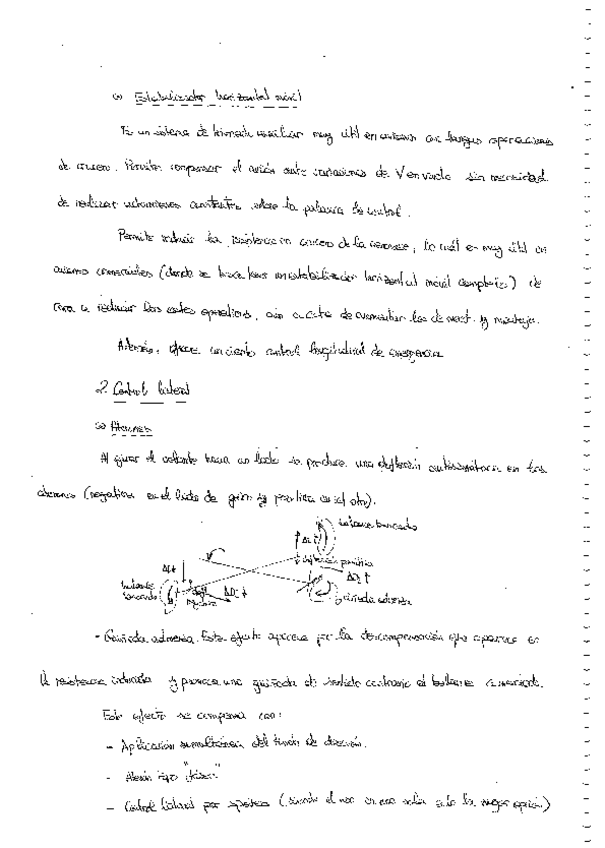 c) Estabilizador horizontal móvil
Es un sistema de trimado auxiliar muy útil en aviones con largas operaciones
de crucero. Permite compensar el avión ante variaciones de V en vuelo sin necesidad
de realizar actuaciones constantes sobre la palanca de control.
Permite reducir la resistencia en crucero de la aeronave, lo cuál es muy útil en
aviones comerciales (donde se suele tener un estabilizador horizontal móvil completo) de
cara a reducir los costes operativos, aún a costa de aumentar los de mant. y montaje.
Además, ofrece un cierto control longitudinal de emergencia
2. Control lateral
a) Alerones
Al girar el volante hacia un lado se produce una deflexión antisimétrica en los
alerones (negativa en el lado de giro y positiva en el otro).
balance comandado
ΔL ↑
deflexión positiva
ΔL ↓
ΔDi ↑
balance
comandado
ΔDi ↓
guiñada adversa
- Guiñada adversa. Este efecto aparece por la descompensación que aparece en
la resistencia inducida y provoca una guiñada de sentido contrario al balance comandado.
Este efecto se compensa con:
- Aplicación simultánea del timón de dirección.
- Alerón tipo "frise"
- Control lateral por spoilers (cuando el